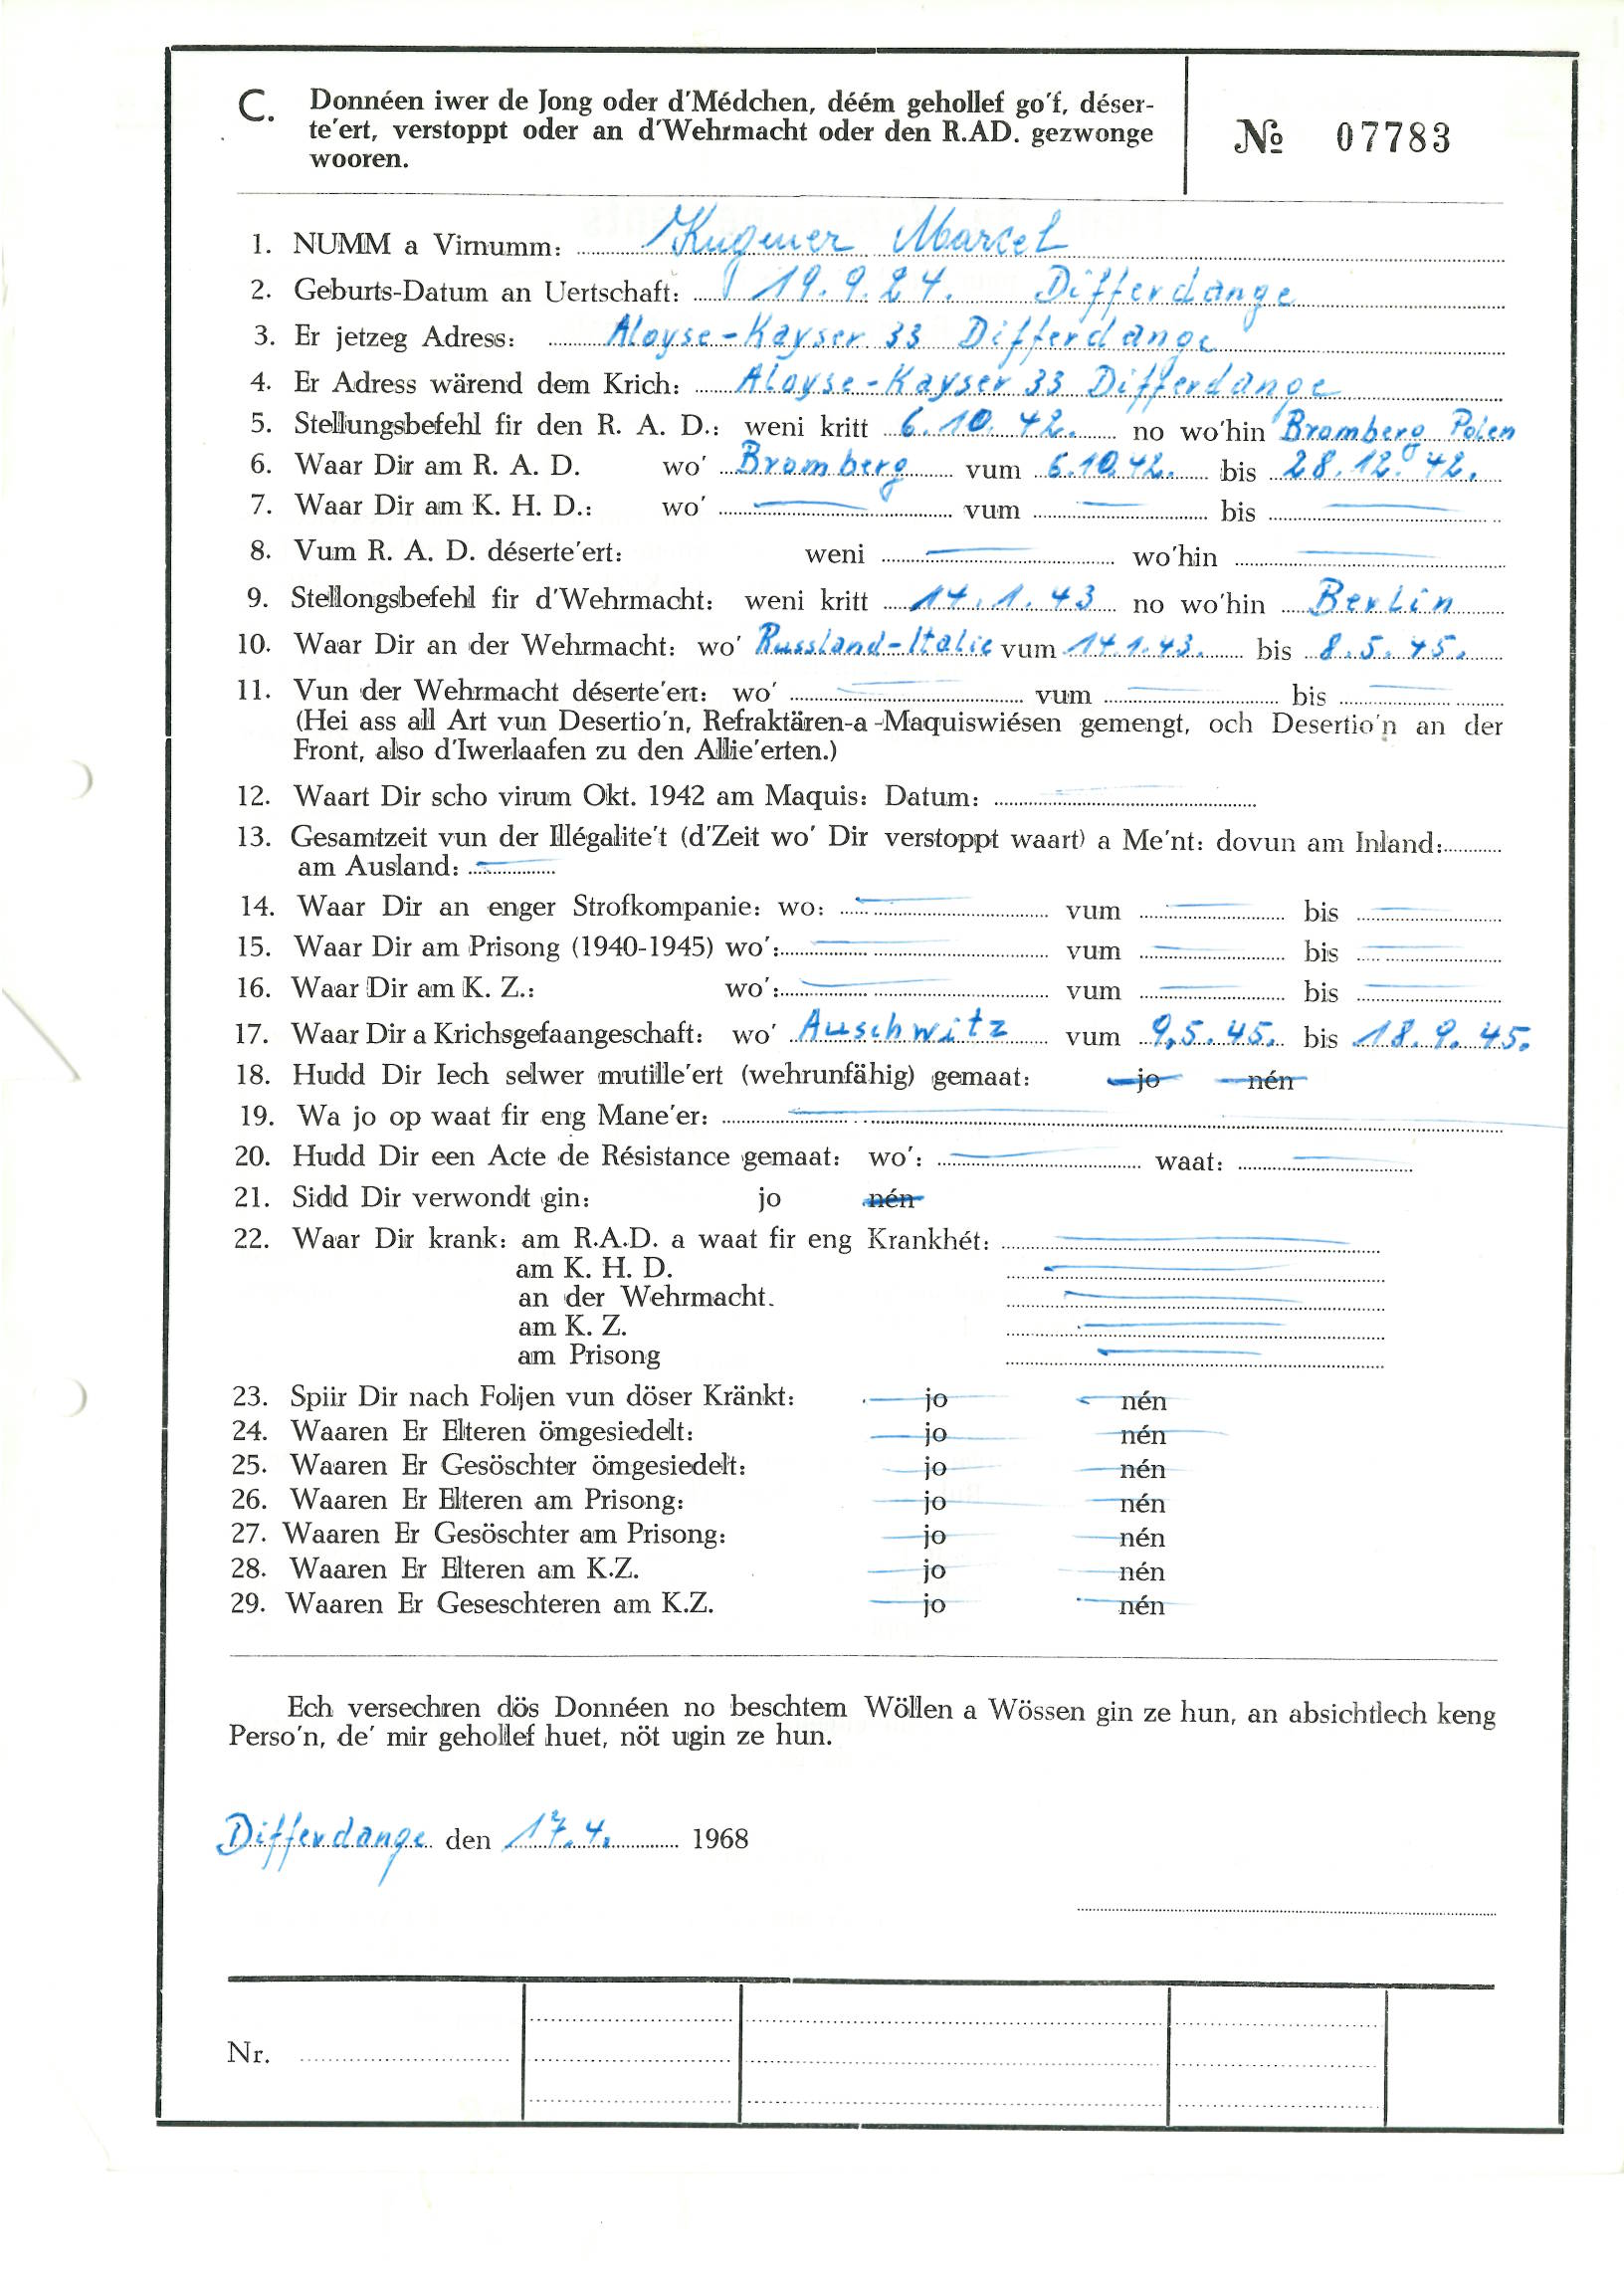 C. Donnéen iwer de Jong oder d'Médchen, déém gehollef go'f, déser-
te'ert, verstoppt oder an d'Wehrmacht oder den R.AD. gezwonge
wooren.
№ 07783
1. NUMM a Virnumm: Kugener Marcel
2. Geburts-Datum an Uertschaft: 19.9.24. Differdange
3. Er jetzeg Adress: Aloyse-Kayser 33 Differdange
4. Er Adress wärend dem Krich: Aloyse-Kayser 33 Differdange
5. Stellungsbefehl fir den R. A. D.: weni kritt 6.10.42. no wo'hin Bromberg Polen
6. Waar Dir am R. A. D. wo' Bromberg vum 6.10.42. bis 28.12.42.
7. Waar Dir am K. H. D.: wo' vum bis
8. Vum R. A. D. déserte'ert: weni wo'hin
9. Stellongsbefehl fir d'Wehrmacht: weni kritt 14.1.43 no wo'hin Berlin
10. Waar Dir an der Wehrmacht: wo' Russland-Italie vum 14.1.43. bis 8.5.45.
11. Vun der Wehrmacht déserte'ert: wo' vum bis
(Hei ass all Art vun Desertio'n, Refraktären-a-Maquiswiésen gemengt, och Desertio'n an der
Front, also d'Iwerlaafen zu den Allie'erten.)
12. Waart Dir scho virum Okt. 1942 am Maquis: Datum:
13. Gesamtzeit vun der Illégalite't (d'Zeit wo' Dir verstoppt waart) a Me'nt: dovun am Inland:
am Ausland:
14. Waar Dir an enger Strofkompanie: wo: vum bis
15. Waar Dir am Prisong (1940-1945) wo': vum bis
16. Waar Dir am K. Z.: wo': vum bis
17. Waar Dir a Krichsgefaangeschaft: wo' Auschwitz vum 9.5.45. bis 18.9.45.
18. Hudd Dir Iech selwer mutille'ert (wehrunfähig) gemaat: jo nén
19. Wa jo op waat fir eng Mane'er:
20. Hudd Dir een Acte de Résistance gemaat: wo': waat:
21. Sidd Dir verwondt gin: jo nén
22. Waar Dir krank: am R.A.D. a waat fir eng Krankhét:
am K. H. D.
an der Wehrmacht.
am K. Z.
am Prisong
23. Spiir Dir nach Foljen vun döser Kränkt: jo nén
24. Waaren Er Elteren ömgesiedelt: jo nén
25. Waaren Er Gesöschter ömgesiedelt: jo nén
26. Waaren Er Elteren am Prisong: jo nén
27. Waaren Er Gesöschter am Prisong: jo nén
28. Waaren Er Elteren am K.Z. jo nén
29. Waaren Er Geseschteren am K.Z. jo nén
Ech versechren dös Donnéen no beschtem Wöllen a Wössen gin ze hun, an absichtlech keng
Perso'n, de' mir gehollef huet, nöt ugin ze hun.
Differdange den 17.4. 1968
Nr.